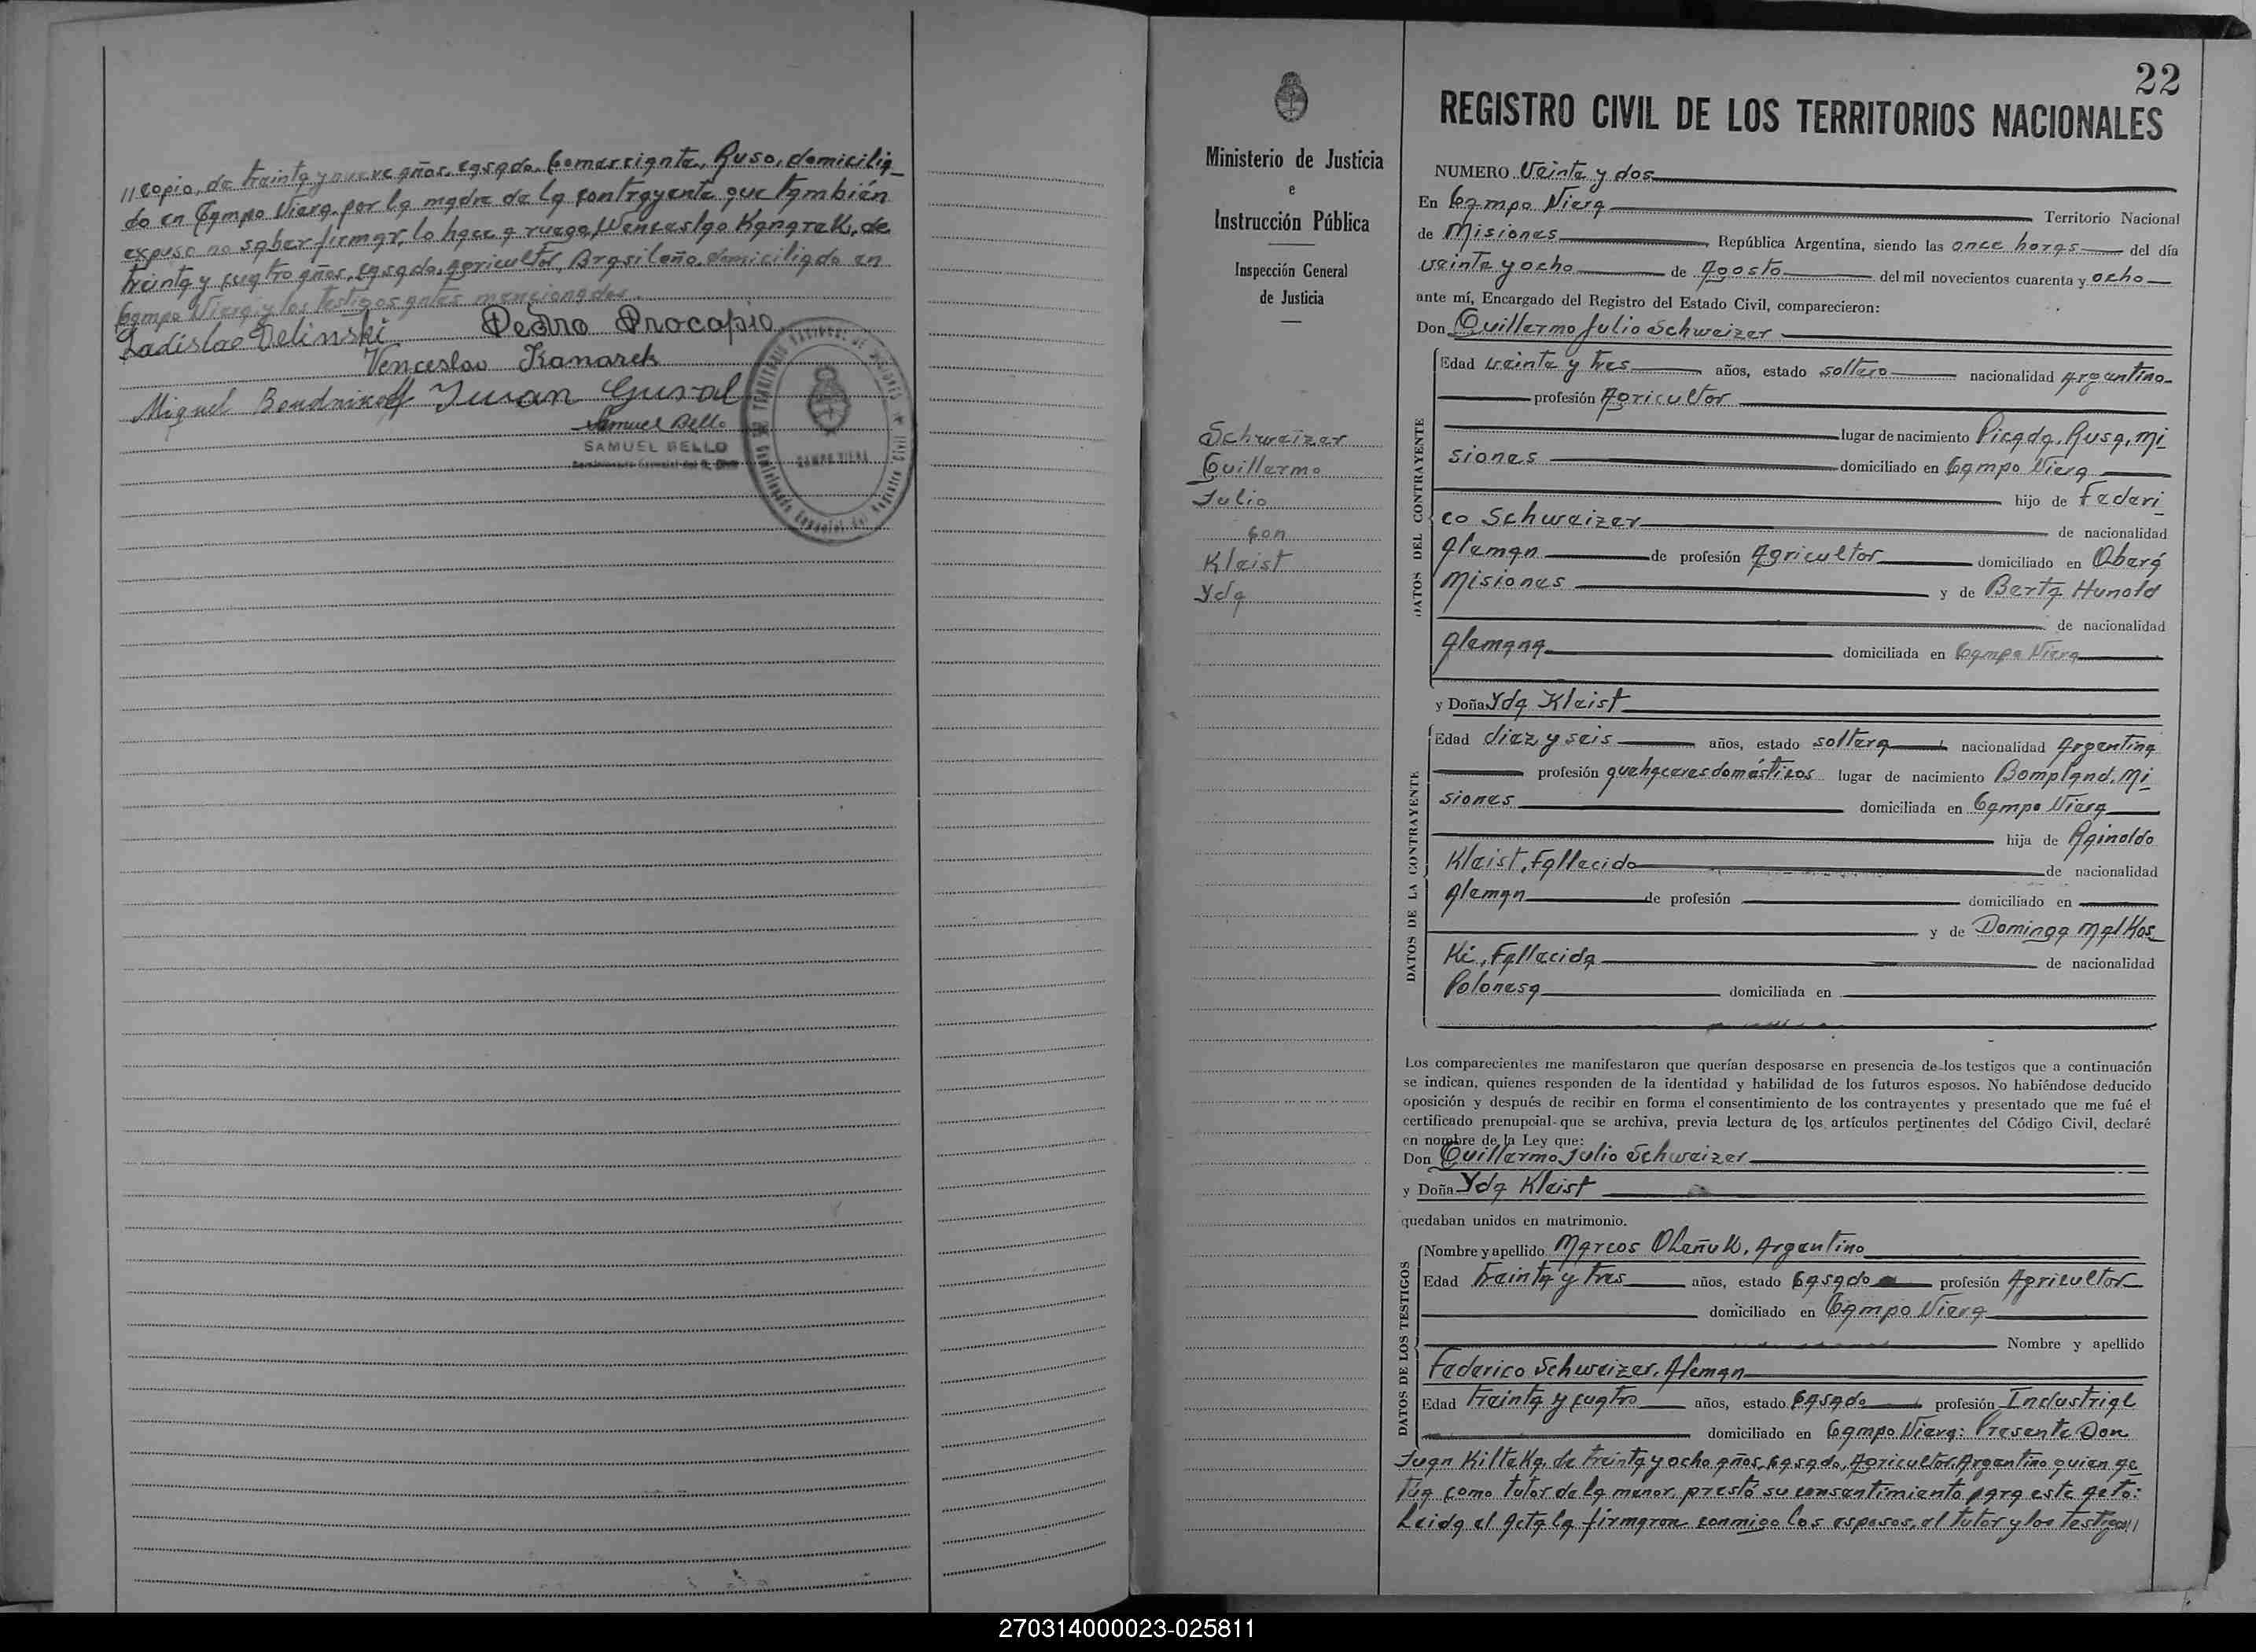 //copio, de treinta y nueve años, casado, Comerciante, Ruso, domicilia_
do en Campo Viera, por la madre de la contrayente que también
expuso no saber firmar, lo hace a ruego, Wenceslao Kanarek, de
treinta y cuatro años, casado, Agricultor, Brasileño, domiciliado en
Campo Viera, y los testigos antes mencionados.
Ladislao Delinski Pedro Procopio
Venceslao Kanarek
Miguel Juan Gural
Samuel Bello
SAMUEL BELLO
CAMPO VIERA
22
REGISTRO CIVIL DE LOS TERRITORIOS NACIONALES
Ministerio de Justicia
e
Instrucción Pública
Inspección General
de Justicia
Schweizer
Guillermo
Julio
con
Kleist
Yda
NUMERO Veinte y dos
En Campo Viera Territorio Nacional
de Misiones República Argentina, siendo las once horas del día
veinte y ocho de Agosto del mil novecientos cuarenta y ocho
ante mí, Encargado del Registro del Estado Civil, comparecieron:
Don Guillermo Julio Schweizer
DATOS DEL CONTRAYENTE
Edad veinte y tres años, estado soltero nacionalidad Argentino
profesión Agricultor
lugar de nacimiento Picada, Rusa, Mi_
siones domiciliado en Campo Viera
hijo de Federi_
co Schweizer de nacionalidad
Aleman de profesión Agricultor domiciliado en Oberá
Misiones y de Berta Hunold
de nacionalidad
Alemana domiciliada en Campo Viera
y Doña Yda Kleist
DATOS DE LA CONTRAYENTE
Edad diez y seis años, estado soltera nacionalidad Argentina
profesión quehaceres domésticos lugar de nacimiento Bompland, Mi_
siones domiciliada en Campo Viera
hija de Rginoldo
Kleist, Fallecido de nacionalidad
Aleman de profesión domiciliado en
y de Dominga Malkos_
ki, Fallecida de nacionalidad
Polonesa domiciliada en
Los comparecientes me manifestaron que querían desposarse en presencia de los testigos que a continuación
se indican, quienes responden de la identidad y habilidad de los futuros esposos. No habiéndose deducido
oposición y después de recibir en forma el consentimiento de los contrayentes y presentado que me fué el
certificado prenupcial que se archiva, previa lectura de los artículos pertinentes del Código Civil, declaré
en nombre de la Ley que:
Don Guillermo Julio Schweizer
y Doña Yda Kleist
quedaban unidos en matrimonio.
DATOS DE LOS TESTIGOS
Nombre y apellido Marcos Oleñuk, Argentino
Edad treinta y tres años, estado Casado profesión Agricultor
domiciliado en Campo Viera
Nombre y apellido
Federico Schweizer, Aleman
Edad treinta y cuatro años, estado casado profesión Industrial
domiciliado en Campo Viera: Presente Don
Juan Kilteka, de treinta y ocho años, casado, Agricultor, Argentino quien ac_
túa como tutor de la menor prestó su consentimiento para este acto:
Leida el acta la firmaron conmigo los esposos, el tutor y los testigos//
270314000023-025811